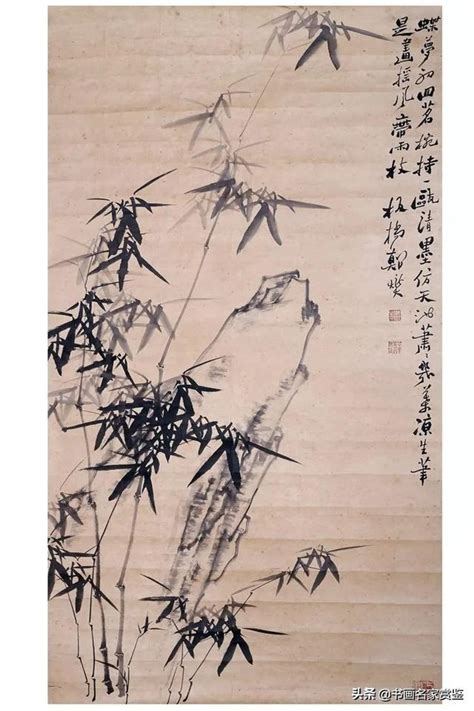 蝶夢初回茗椀持一甌清墨仿天池蕭々幾葉凉生筆
是畫摇風帶雨枝 板橋鄭燮
头条 @书画名家赏鉴